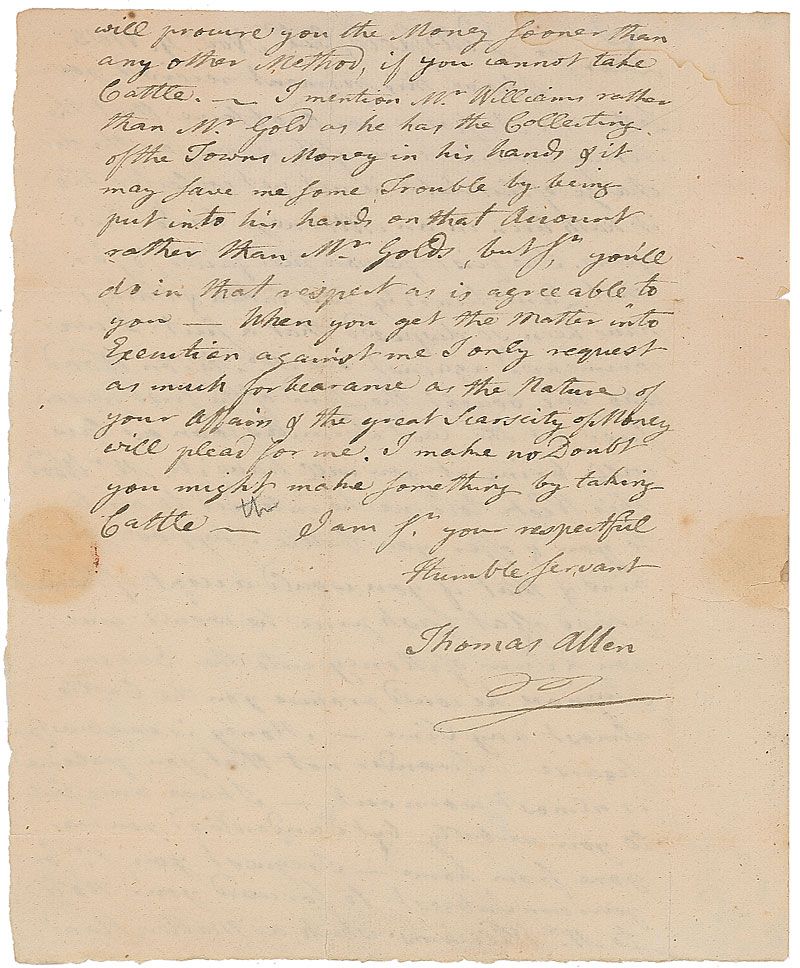 will procure you the Money sooner than
any other Method, if you cannot take
Cattle. — I mention Mr Williams rather
than Mr Gold as he has the Collecting
of the Towns Money in his hands & it
may save me some Trouble by being
put into his hands on that Account
rather than Mr Golds, but Sr, you'll
do in that respect as is agreeable to
you — When you get the Matter into
Execution against me I only request
as much forbearance as the Nature of
your Affairs & the great Scarscity of Money
will plead for me. I make no Doubt
you might make something by taking
Cattle — I am Sr your respectful
Humble Servant
Thomas Allen